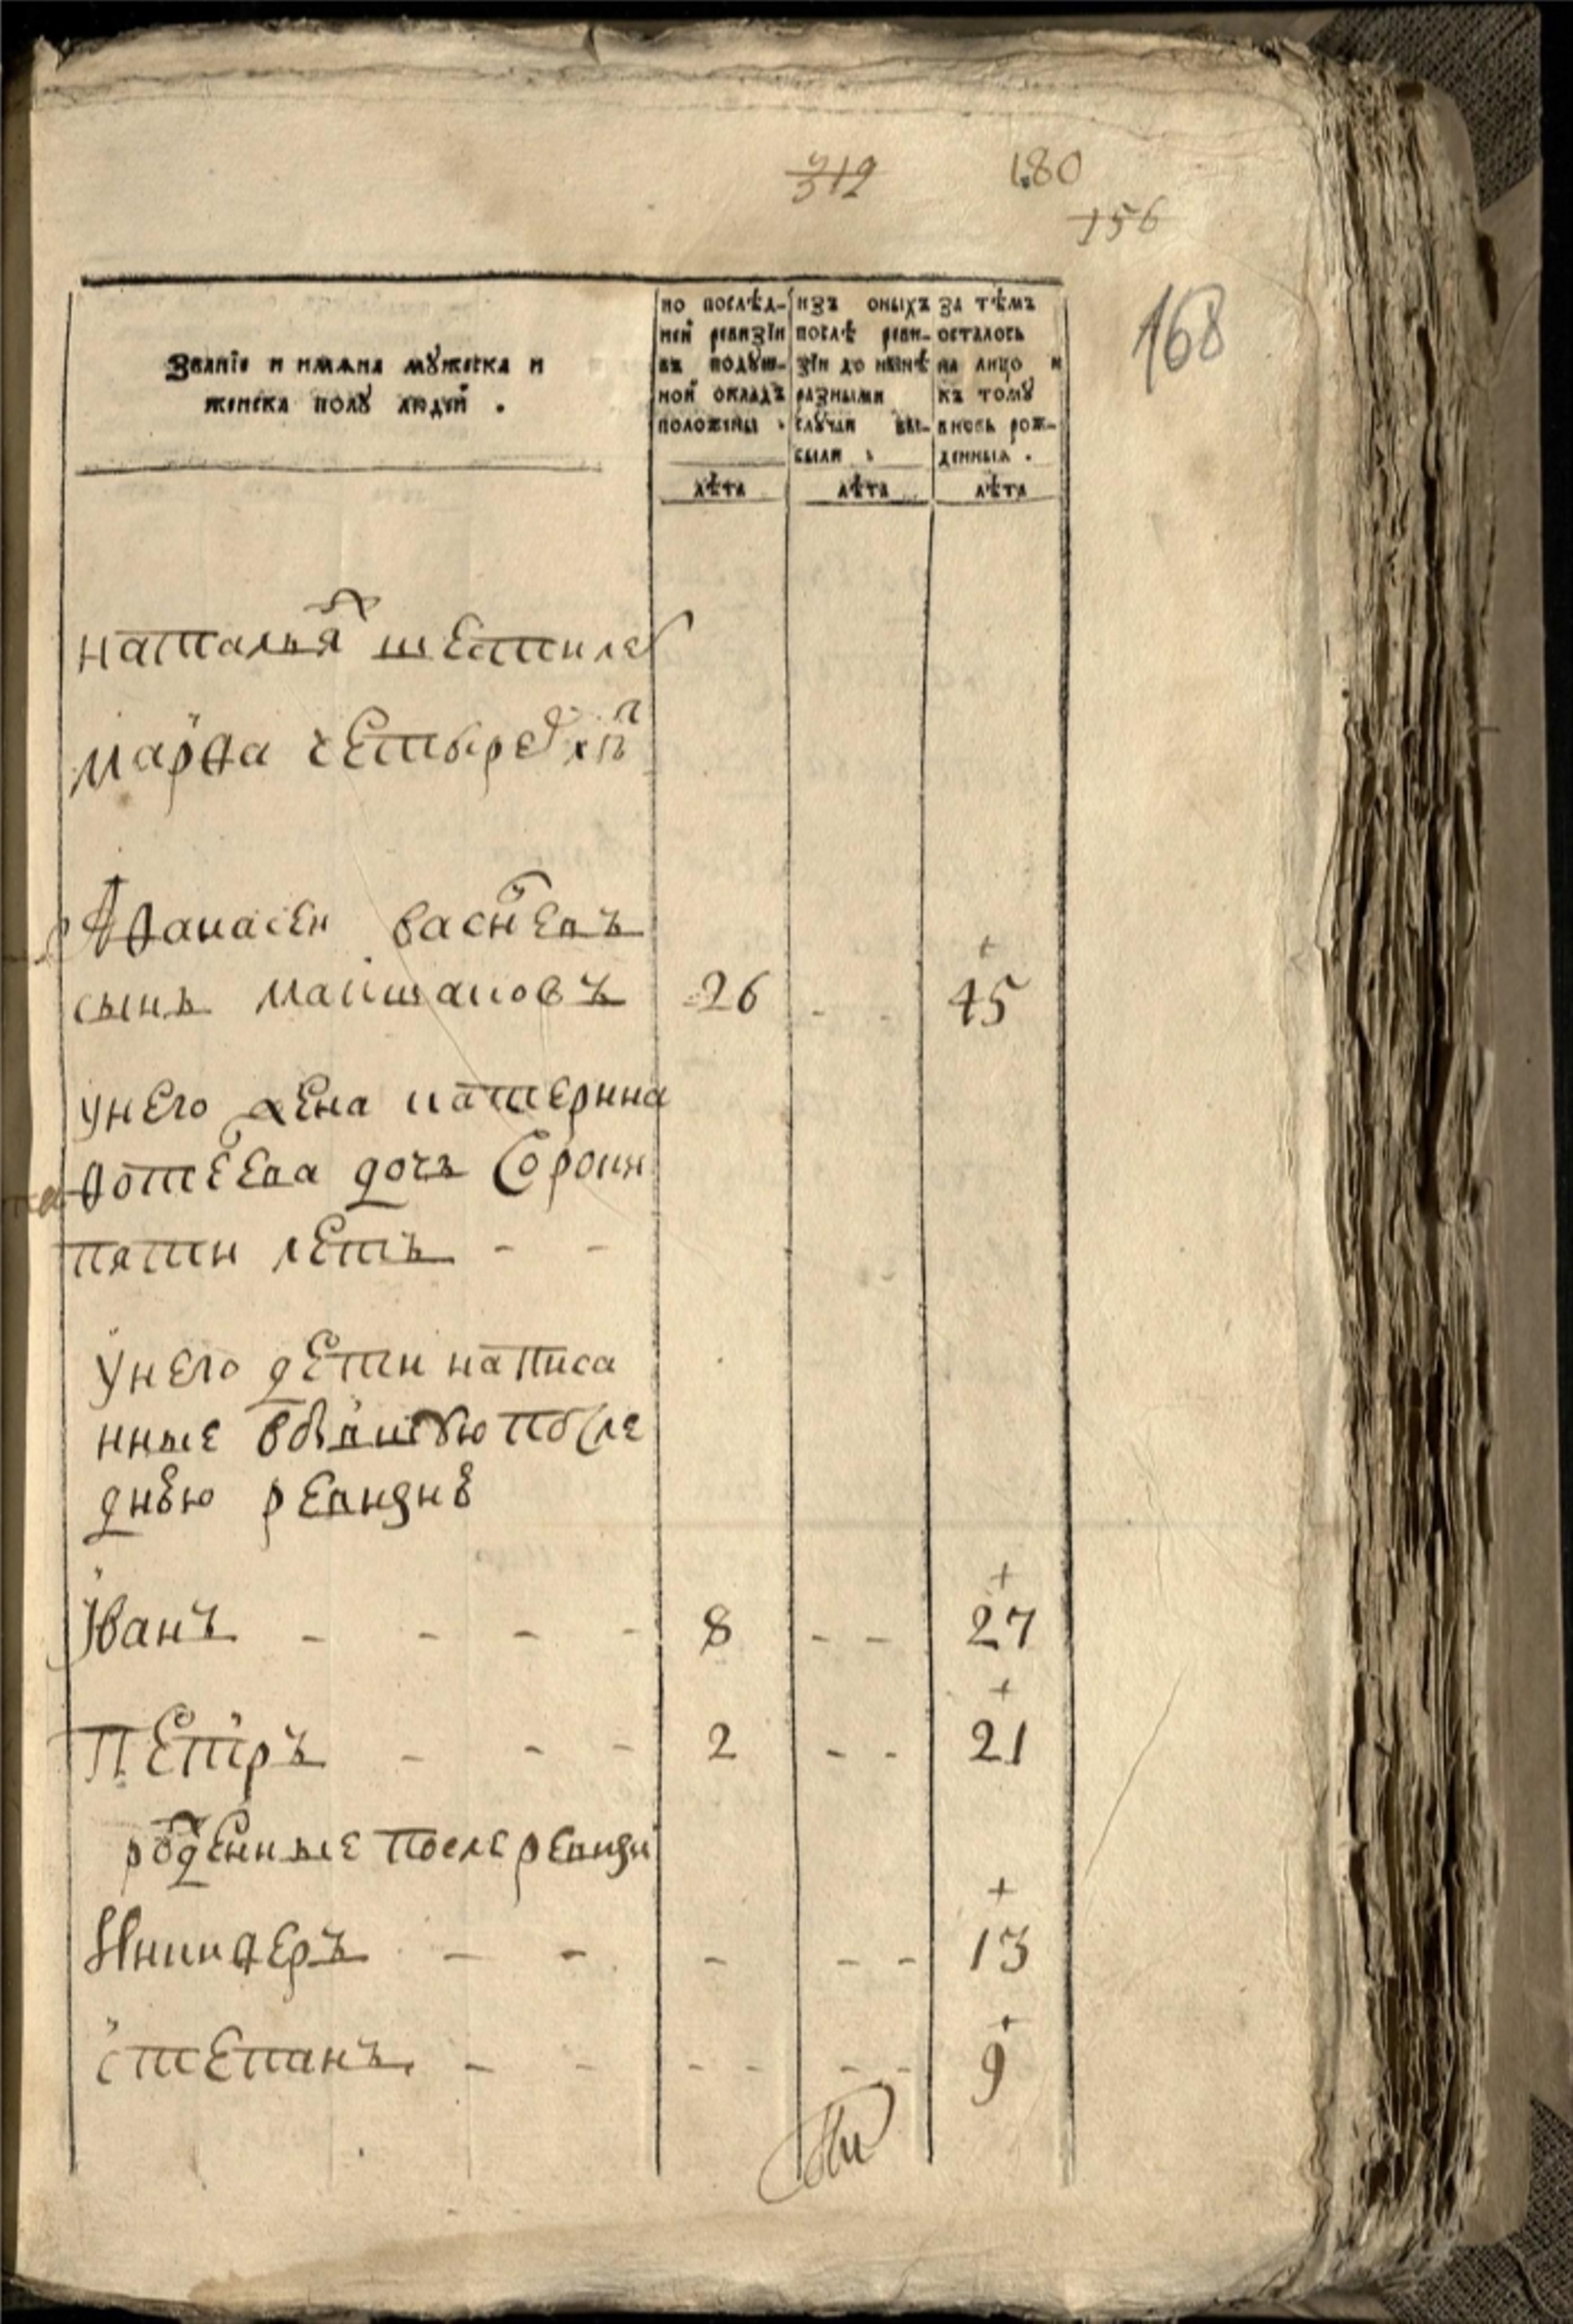 312
180
156
168
Званїе и имѧна мꙋжеска и
женска полꙋ людїй .
по послѣд-
ней ревизїи
въ подꙋш-
ной окладъ
положены .
изъ оныхъ
послѣ реви-
зїи до нынѣ
разными
слꙋчаи вы-
были .
за тѣмъ
осталось
на лицо и
къ томꙋ
вновь рож-
денныѧ .
лѣта лѣта лѣта
наталья шестиле
марѳа четыредⷯ лⷮ
Аѳанасеи васиⷧевъ
сынъ 26 - - 45
унего жена катерина
дочь Сороки
пяти летъ - -
унего дети написа
нные после
днѣю ревизиѣ
Иванъ - - - - 8 - - 27
Петръ - - - 2 - - 21
рожденные после ревизи
Никиѳеръ - - - - - 13
степанъ - - - - - - 9